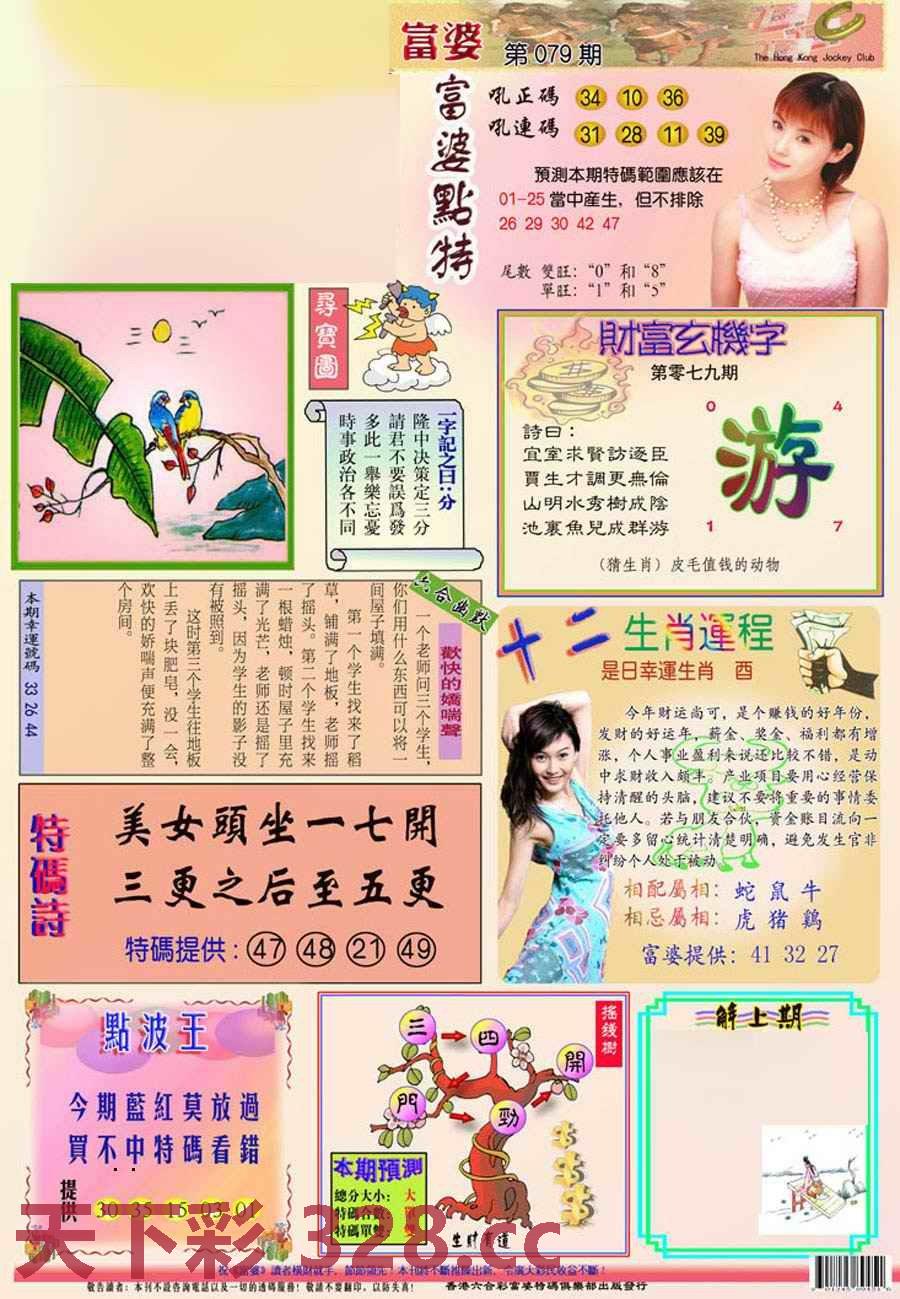 富婆 第079期
The Hong Kong Jockey Club
富婆點特
吼正碼 34 10 36
吼連碼 31 28 11 39
預測本期特碼範圍應該在
01-25當中産生，但不排除
26 29 30 42 47
尾數 雙旺：“0”和“8”
單旺：“1”和“5”
尋寶圖
一字記之曰：分
隆中决策定三分
請君不要誤爲發
多此一舉樂忘憂
時事政治各不同
財富玄機字
第零七九期
詩曰：
宜室求賢訪逐臣
賈生才調更無倫
山明水秀樹成陰
池裏魚兒成群游
0 4
游
1 7
（猜生肖）皮毛值钱的动物
六合幽默
歡快的嬌喘聲
一个老师问三个学生，
你们用什么东西可以将一
间屋子填满。
第一个学生找来了稻
草，铺满了地板，老师摇
了摇头。第二个学生找来
一根蜡烛，顿时屋子里充
满了光芒，老师还是摇了
摇头，因为学生的影子没
有被照到。
这时第三个学生往地板
上丢了块肥皂，没一会，
欢快的娇喘声便充满了整
个房间。
本期幸運號碼 33 26 44
十二生肖運程
是日幸運生肖 酉
今年财运尚可，是个赚钱的好年份，
发财的好运年，薪金、奖金、福利都有增
涨，个人事业盈利来说还比较不错，是动
中求财收入颇丰。产业项目要用心经营保
持清醒的头脑，建议不要将重要的事情委
托他人。若与朋友合伙，资金账目流向一
定要多留心统计清楚明确，避免发生官非
纠纷个人处于被动。
相配屬相：蛇 鼠 牛
相忌屬相：虎 猪 鷄
富婆提供：41 32 27
特碼詩
美女頭坐一七開
三更之后至五更
特碼提供：47 48 21 49
點波王
今期藍紅莫放過
買不中特碼看錯
提供 30 35 15 03 01
搖錢樹
三 四
門 勁 開
本期預測
總分大小：大
特碼合數：單
特碼單雙：雙
生財有道
解上期
天下彩 328.cc
祝《富婆》讀者橫財就手，節節領先！本刊將不斷推陳出新，令廣大彩民收益不斷！
敬告讀者：本刊不設咨詢電話以及一切的透碼服務！敬請不要翻印，以防失真！ 香港六合彩富婆特碼俱樂部出版發行